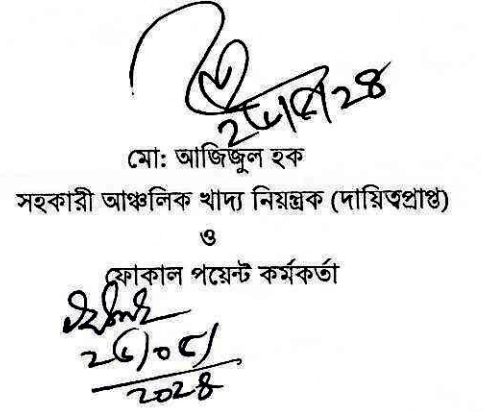 ২৬/৫/২৪
মো: আজিজুল হক
সহকারী আঞ্চলিক খাদ্য নিয়ন্ত্রক (দায়িত্বপ্রাপ্ত)
ও
ফোকাল পয়েন্ট কর্মকর্তা
২৬/০৫/
২০২৪